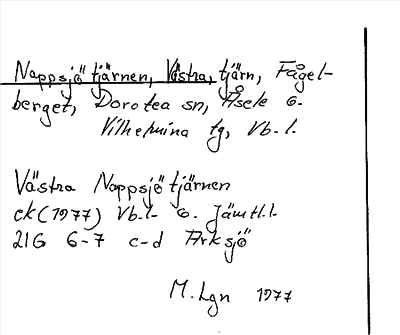 Nappsjötjärnen, Västra, tjärn, Fågel-
berget, Dorotea sn, Åsele o.
Vilhelmina tg, Vb. l.
Västra Nappsjötjärnen
ek (1977) Vb.l- o. Jämtl.l
21G 6-7 c-d Arksjö
M. Lgn 1977